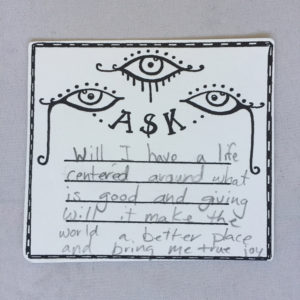 ASK
Will I have a life
centered around what
is good and giving
will it make the
world a better place
and bring me true joy